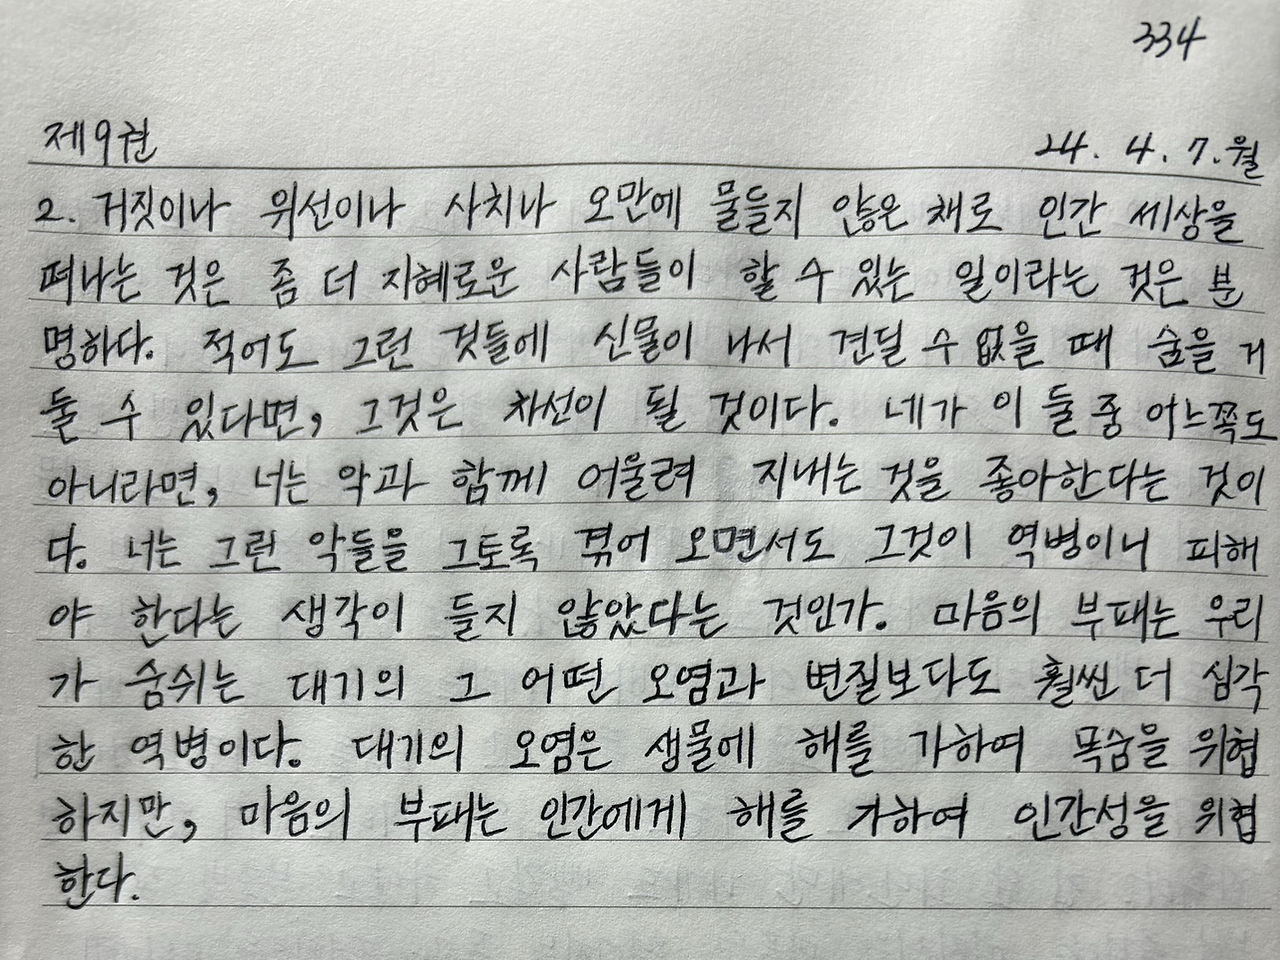 334
제9권 24. 4. 7. 월
2. 거짓이나 위선이나 사치나 오만에 물들지 않은 채로 인간 세상을
떠나는 것은 좀 더 지혜로운 사람들이 할 수 있는 일이라는 것은 분
명하다. 적어도 그런 것들에 신물이 나서 견딜 수 없을 때 숨을 거
둘 수 있다면, 그것은 차선이 될 것이다. 네가 이 둘 중 어느쪽도
아니라면, 너는 악과 함께 어울려 지내는 것을 좋아한다는 것이
다. 너는 그런 악들을 그토록 겪어 오면서도 그것이 역병이니 피해
야 한다는 생각이 들지 않았다는 것인가. 마음의 부패는 우리
가 숨쉬는 대기의 그 어떤 오염과 변질보다도 훨씬 더 심각
한 역병이다. 대기의 오염은 생물에 해를 가하여 목숨을 위협
하지만, 마음의 부패는 인간에게 해를 가하여 인간성을 위협
한다.